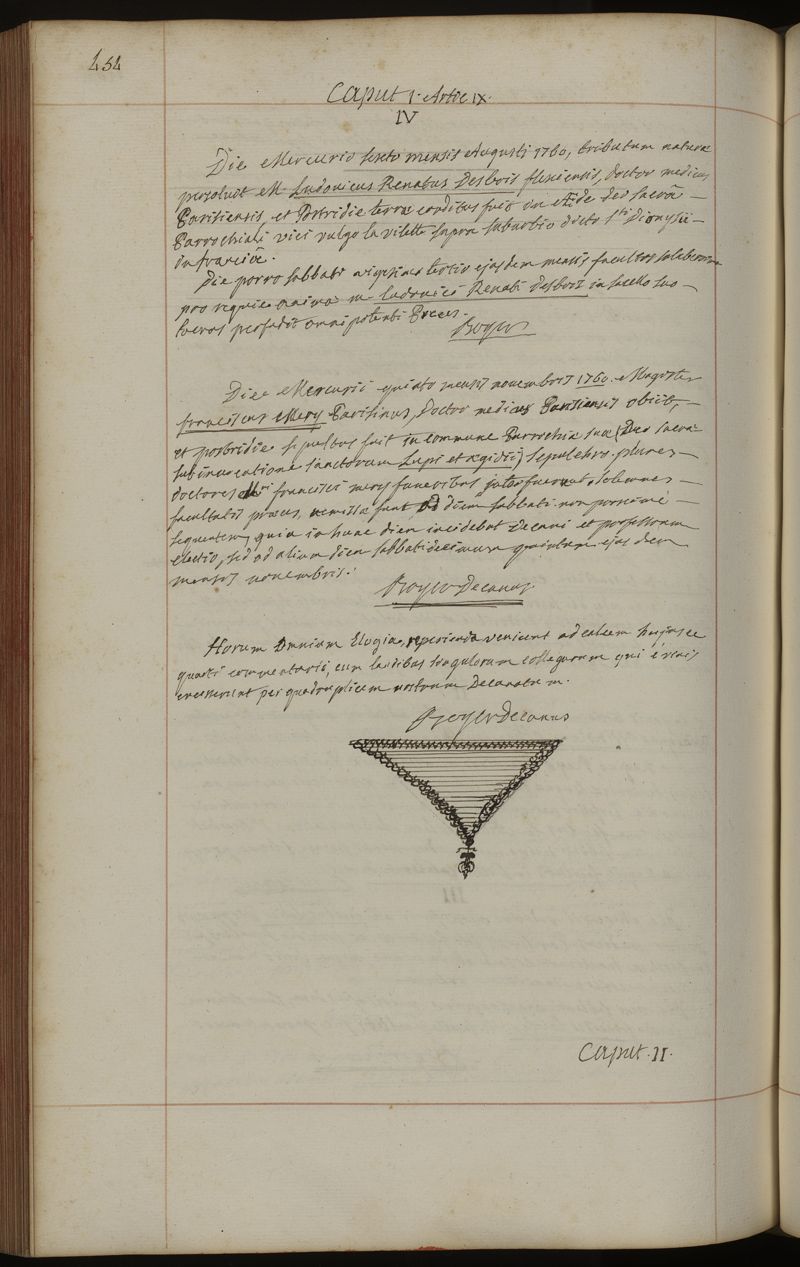 454
Caput I. Artic IX.
IV
Die Mercurio sexto mensis Augusti 1760, tributum naturæ
persolvit M. Ludovicus Renatus Desbois flexiensis, doctor medicus
Parisiensis, et Postridie terræ conditus fuit in Æde deo sacrâ –
Parrochiali vici vulgo la vilette supra suburbio dicto Sti Dionysii –
in franciâ.
Die porro sabbati vigesimo tertio ejusdem mensis facultas saluberrima
pro requie animæ m. ludovici Renati desbois in sacello suo –
lueros persolvit omnipotenti Preces.
Boyer
Die Mercurii quinto mensis novembris 1760. Magister
franciscus Mery Parisinus, Doctor medicus Parisiensis obiit, –
et postridie sepultus fuit in commune Parrochiæ suæ (Deo sacræ
sub invocatione sanctorum Lupi et ægidii) sepulchro. plures –
doctores Mri francisci mery funeribus interfuerunt, solemnes –
facultatis preces, remissæ sunt ad diem sabbati non proximè –
sequentem, quia in hunc diem incidebat Decani et professorum
electio, sed ad alium diem sabbati decimum quintum ejusdem
mensis novembris.
Boyer Decanus
Horum Omnium Elogia, reperienda veniunt ad calcem hujusce
quarti commentarii, cum laudibus singulorum collegarum qui è vivis
excesserunt per quadruplicem nostrum Decanatum.
Boyer Decanus
Caput. II.